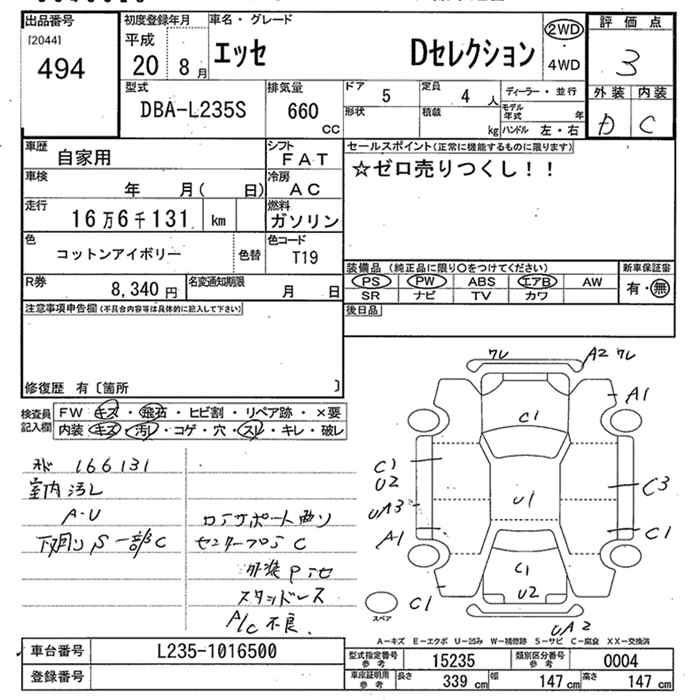 出品番号 初度登録年月 車名・グレード 評価点
[2044] 平成
494 20 8月 エッセ Dセレクション 2WD・4WD 3
型式 排気量 ドア 5 定員 4人 ディーラー・並行 外装 内装
DBA-L235S 660 CC 形状 積載 kg モデル年式 年 ハンドル 左・右 D C
車歴 自家用 シフト FAT セールスポイント(正常に機能するものに限ります)
車検 年 月( 日) 冷房 AC ☆ゼロ売りつくし!!
走行 16万6千131 km 燃料 ガソリン
色 コットンアイボリー 色替 色コード T19
装備品(純正品に限り○をつけてください) 新車保証書
R券 8,340円 名変通知期限 月 日 PS PW ABS エアB AW 有・無
SR ナビ TV カワ
注意事項申告欄(不具合内容等は具体的に記入して下さい) 後日品
修復歴 有〔箇所 〕
検査員記入欄 FW キズ・飛石・ヒビ割・リペア跡・×要
内装 キズ・汚レ・コゲ・穴・スレ・キレ・破レ
166131
室内汚レ
A・U ロアサポート曲リ
下廻りS一部C
スタッドレス
A/C不良
ワレ A2 ワレ
A1
C1
C1 U2 C3
U1
UA3
A1 C1
C1
U2
C1
UA2
スペア
A-キズ E-エクボ U-凹み W-補修跡 S-サビ C-腐食 XX-交換済
車台番号 L235-1016500 型式指定番号 参考 15235 類別区分番号 参考 0004
登録番号 車庫証明用 参考 長さ 339cm 幅 147cm 高さ 147cm